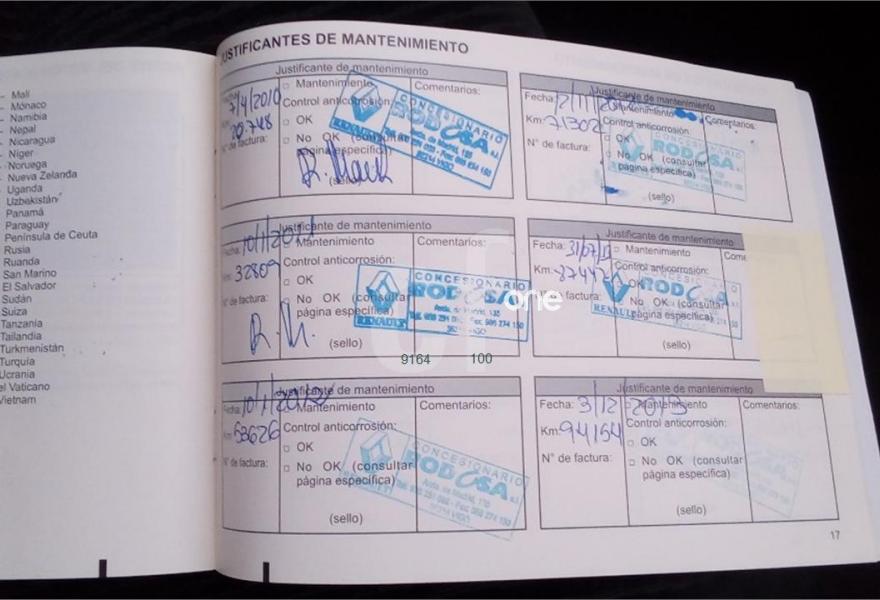 - Mali
- Mónaco
- Namibia
- Nepal
- Nicaragua
- Níger
- Noruega
- Nueva Zelanda
- Uganda
Uzbekistán
Panamá
Paraguay
Península de Ceuta
Rusia
Ruanda
San Marino
El Salvador
Sudán
Suiza
Tanzania
Tailandia
Turkmenistán
Turquía
Ucrania
el Vaticano
Vietnam
JUSTIFICANTES DE MANTENIMIENTO
Justificante de mantenimiento
7/4/2010
20.748
N° de factura:
Mantenimiento
Control anticorrosión:
OK
No OK (consultar
página específica)
(sello)
Comentarios:
CONCESIONARIO
RODOSA
RENAULT
Justificante de mantenimiento
Fecha:
Km: 71302
N° de factura:
Mantenimiento
Control anticorrosión:
OK
No OK (consultar
página específica)
(sello)
Comentarios:
RODOSA
Justificante de mantenimiento
Fecha: 10/1/2011
Km: 32809
N° de factura:
Mantenimiento
Control anticorrosión:
OK
No OK (consultar
página específica)
(sello)
Comentarios:
CONCESIONARIO
RODOSA
RENAULT
Justificante de mantenimiento
Fecha: 31/07/13
Km:
factura:
Mantenimiento
Control anticorrosión:
OK
No OK (consultar
página específica)
(sello)
Come
CONCESIONARIO
RENAULT
one
9164 100
Justificante de mantenimiento
Fecha: 10/1/2012
Km: 53626
N° de factura:
Mantenimiento
Control anticorrosión:
OK
No OK (consultar
página específica)
(sello)
Comentarios:
CONCESIONARIO
RODOSA
Justificante de mantenimiento
Fecha: 3/12/2013
Km: 94164
N° de factura:
Mantenimiento
Control anticorrosión:
OK
No OK (consultar
página específica)
(sello)
Comentarios:
17